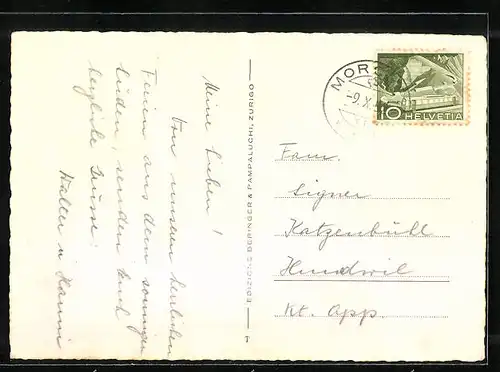 Meine Lieben!
Von unseren herrlichen
Ferien aus dem sonnigen
Süden, senden Euch
herzliche Grüsse:
Walter u Hanni
EDIZIONE BERINGER & PAMPALUCHI, ZURIGO
7
MOR
-9.X
10 HELVETIA
Fam.
Signer
Katzenbühl
Hundwil
Kt. App.